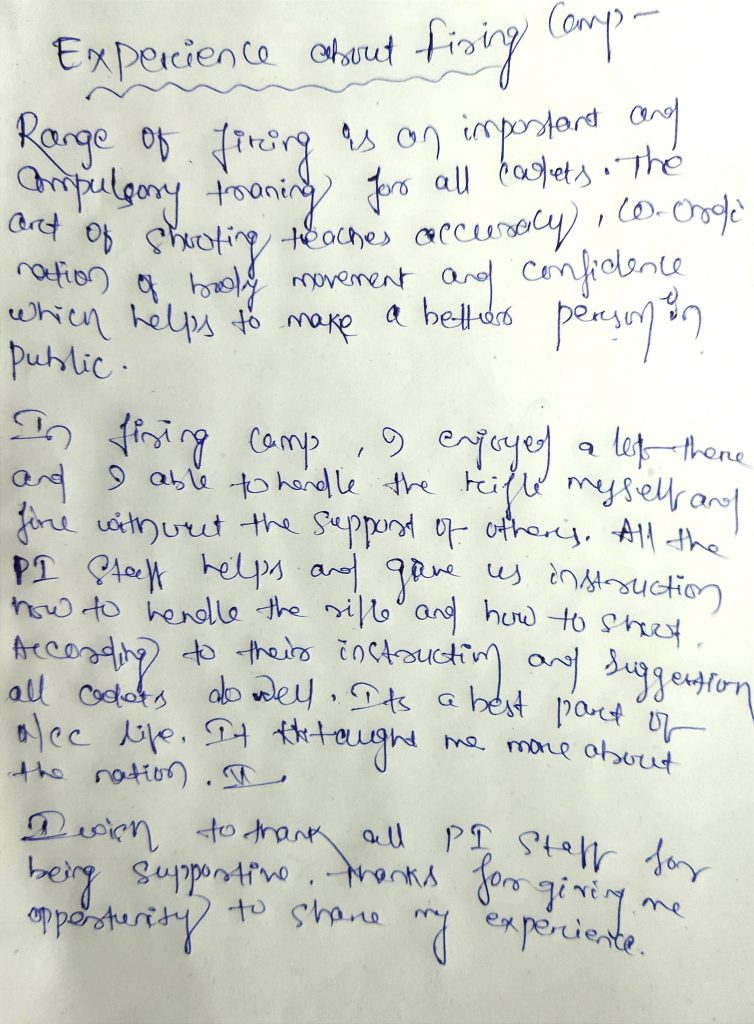 Experience about firing Camp -
Range of firing is an important and
Compulsory traning for all cadets. The
art of shooting teaches accuracy, co-ordi
nation of body movement and confidence
which helps to make a better person in
public.
In firing camp, I enjoyed a lot there
and I able to handle the rifle myself and
fire without the support of others. All the
PI Staff helps and gave us instruction
how to hendle the rifle and how to shoot.
According to their instruction and suggestion
all cadets do well. Its a best part of
NCC life. It taught me more about
the nation.
I wish to thank all PI Staff for
being supportive. thanks for giving me
oppertunity to share my experience.